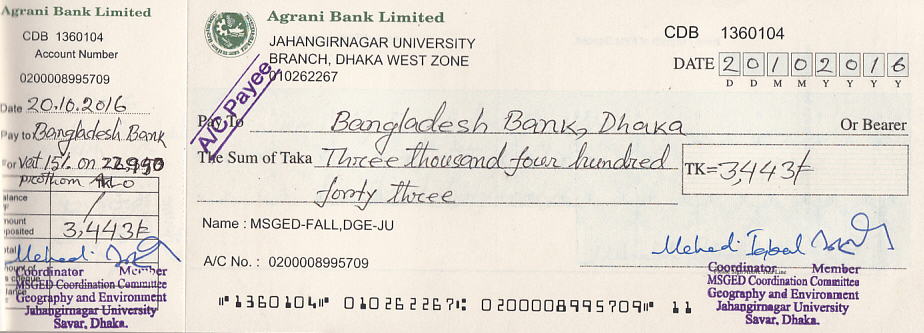 Agrani Bank Limited
CDB 1360104
Account Number
0200008995709
Date 20.10.2016
Pay to Bangladesh Bank
For Vat 15% on 22,950
prothom Alo
3,443/-
Mehedi
Coordinator Member
MSGED Coordination Committee
Geography and Environment
Jahangirnagar University
Savar, Dhaka.
Agrani Bank Limited
JAHANGIRNAGAR UNIVERSITY
BRANCH, DHAKA WEST ZONE
010262267
CDB 1360104
DATE 20102016
D D M M Y Y Y Y
A/C Payee
Pay To Bangladesh Bank, Dhaka Or Bearer
The Sum of Taka Three thousand four hundred
forty three
TK= 3,443/-
Name : MSGED-FALL,DGE-JU
A/C No. : 0200008995709
Mehedi Iqbal
Coordinator Member
MSGED Coordination Committee
Geography and Environment
Jahangirnagar University
Savar, Dhaka.
⑈1360104⑈ 010262267⑆ 0200008995709⑈ 11